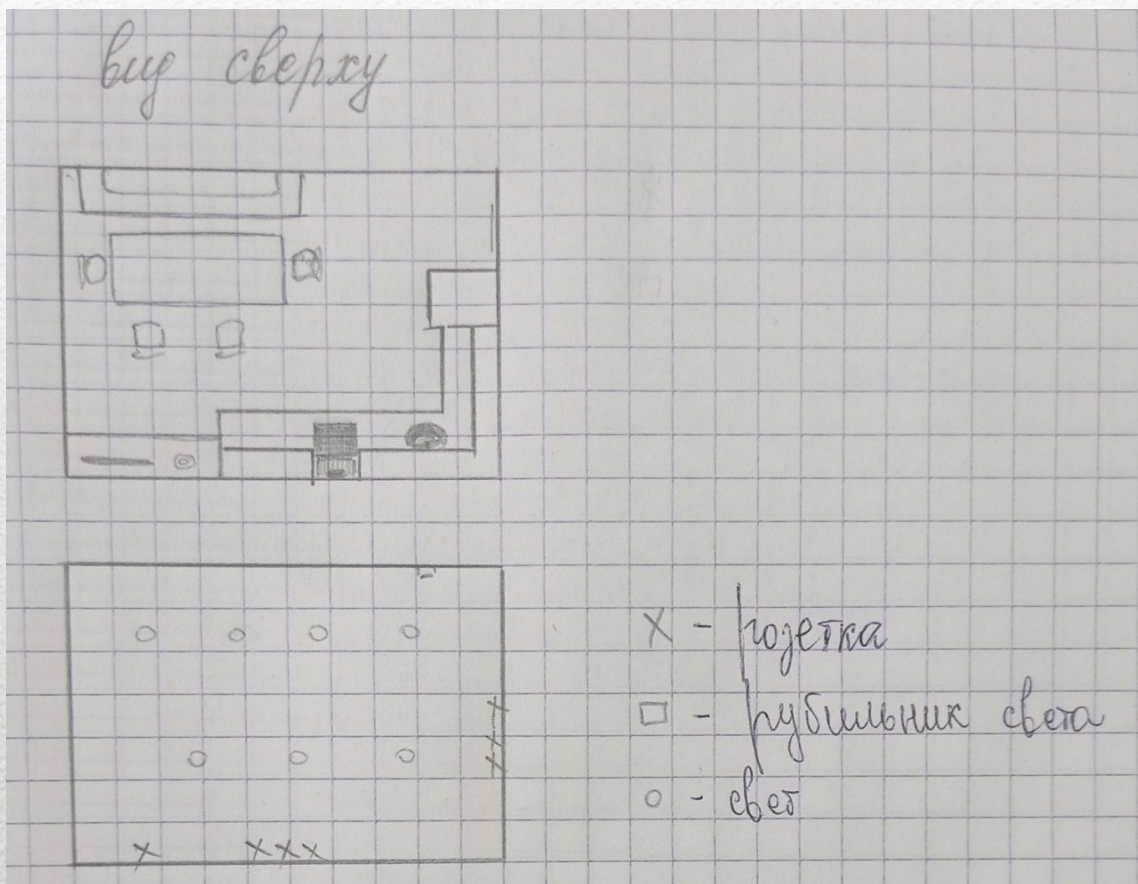 вид сверху
X - розетка
□ - рубильник света
○ - свет